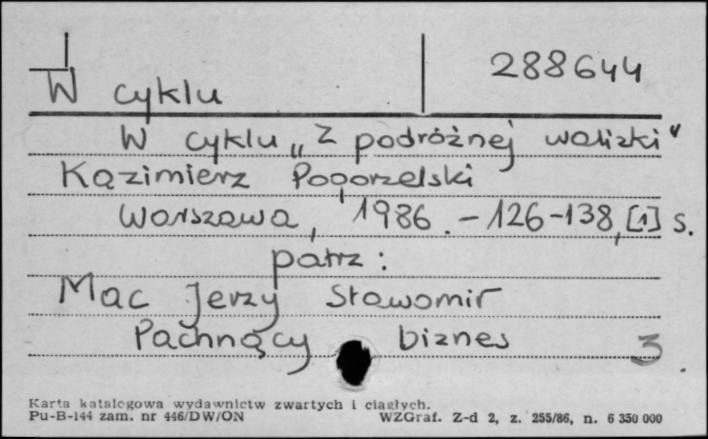 288644
W cyklu
W cyklu „Z podróżnej walizki"
Kazimierz Pogorzelski
Warszawa, 1986. - 126-138, [1] s.
patrz:
Mac Jerzy Sławomir
Pachnący biznes
3
Karta katalogowa wydawnictw zwartych i ciągłych.
Pu-B-144 zam. nr 446/DW/ON WZGraf. Z-d 2, z. 255/86, n. 6 350 000